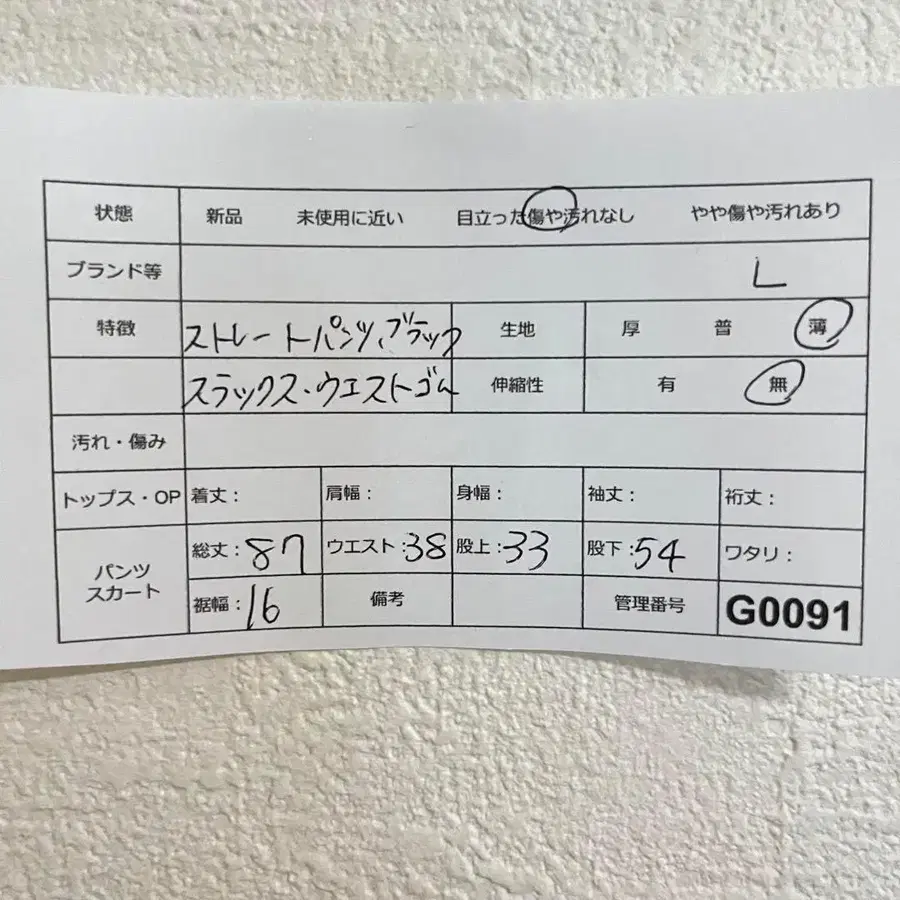 状態 新品 未使用に近い 目立った傷や汚れなし やや傷や汚れあり
ブランド等 L
特徴 ストレートパンツ、ブラック 生地 厚 普 薄
スラックス・ウエストゴム 伸縮性 有 無
汚れ・傷み
トップス・OP 着丈： 肩幅： 身幅： 袖丈： 裄丈：
パンツ スカート 総丈：87 ウエスト：38 股上：33 股下：54 ワタリ：
裾幅：16 備考 管理番号 G0091